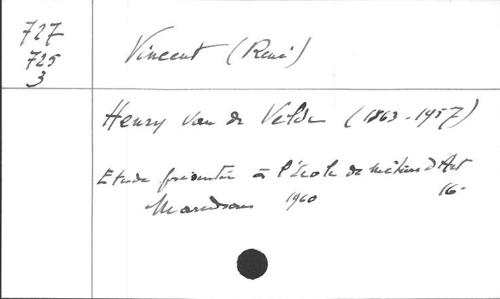 727
725
3
Vincent (René)
Henry van de Velde (1863-1957)
Etude présentée à l'École de métiers d'Art
Maredsous 1960 16-